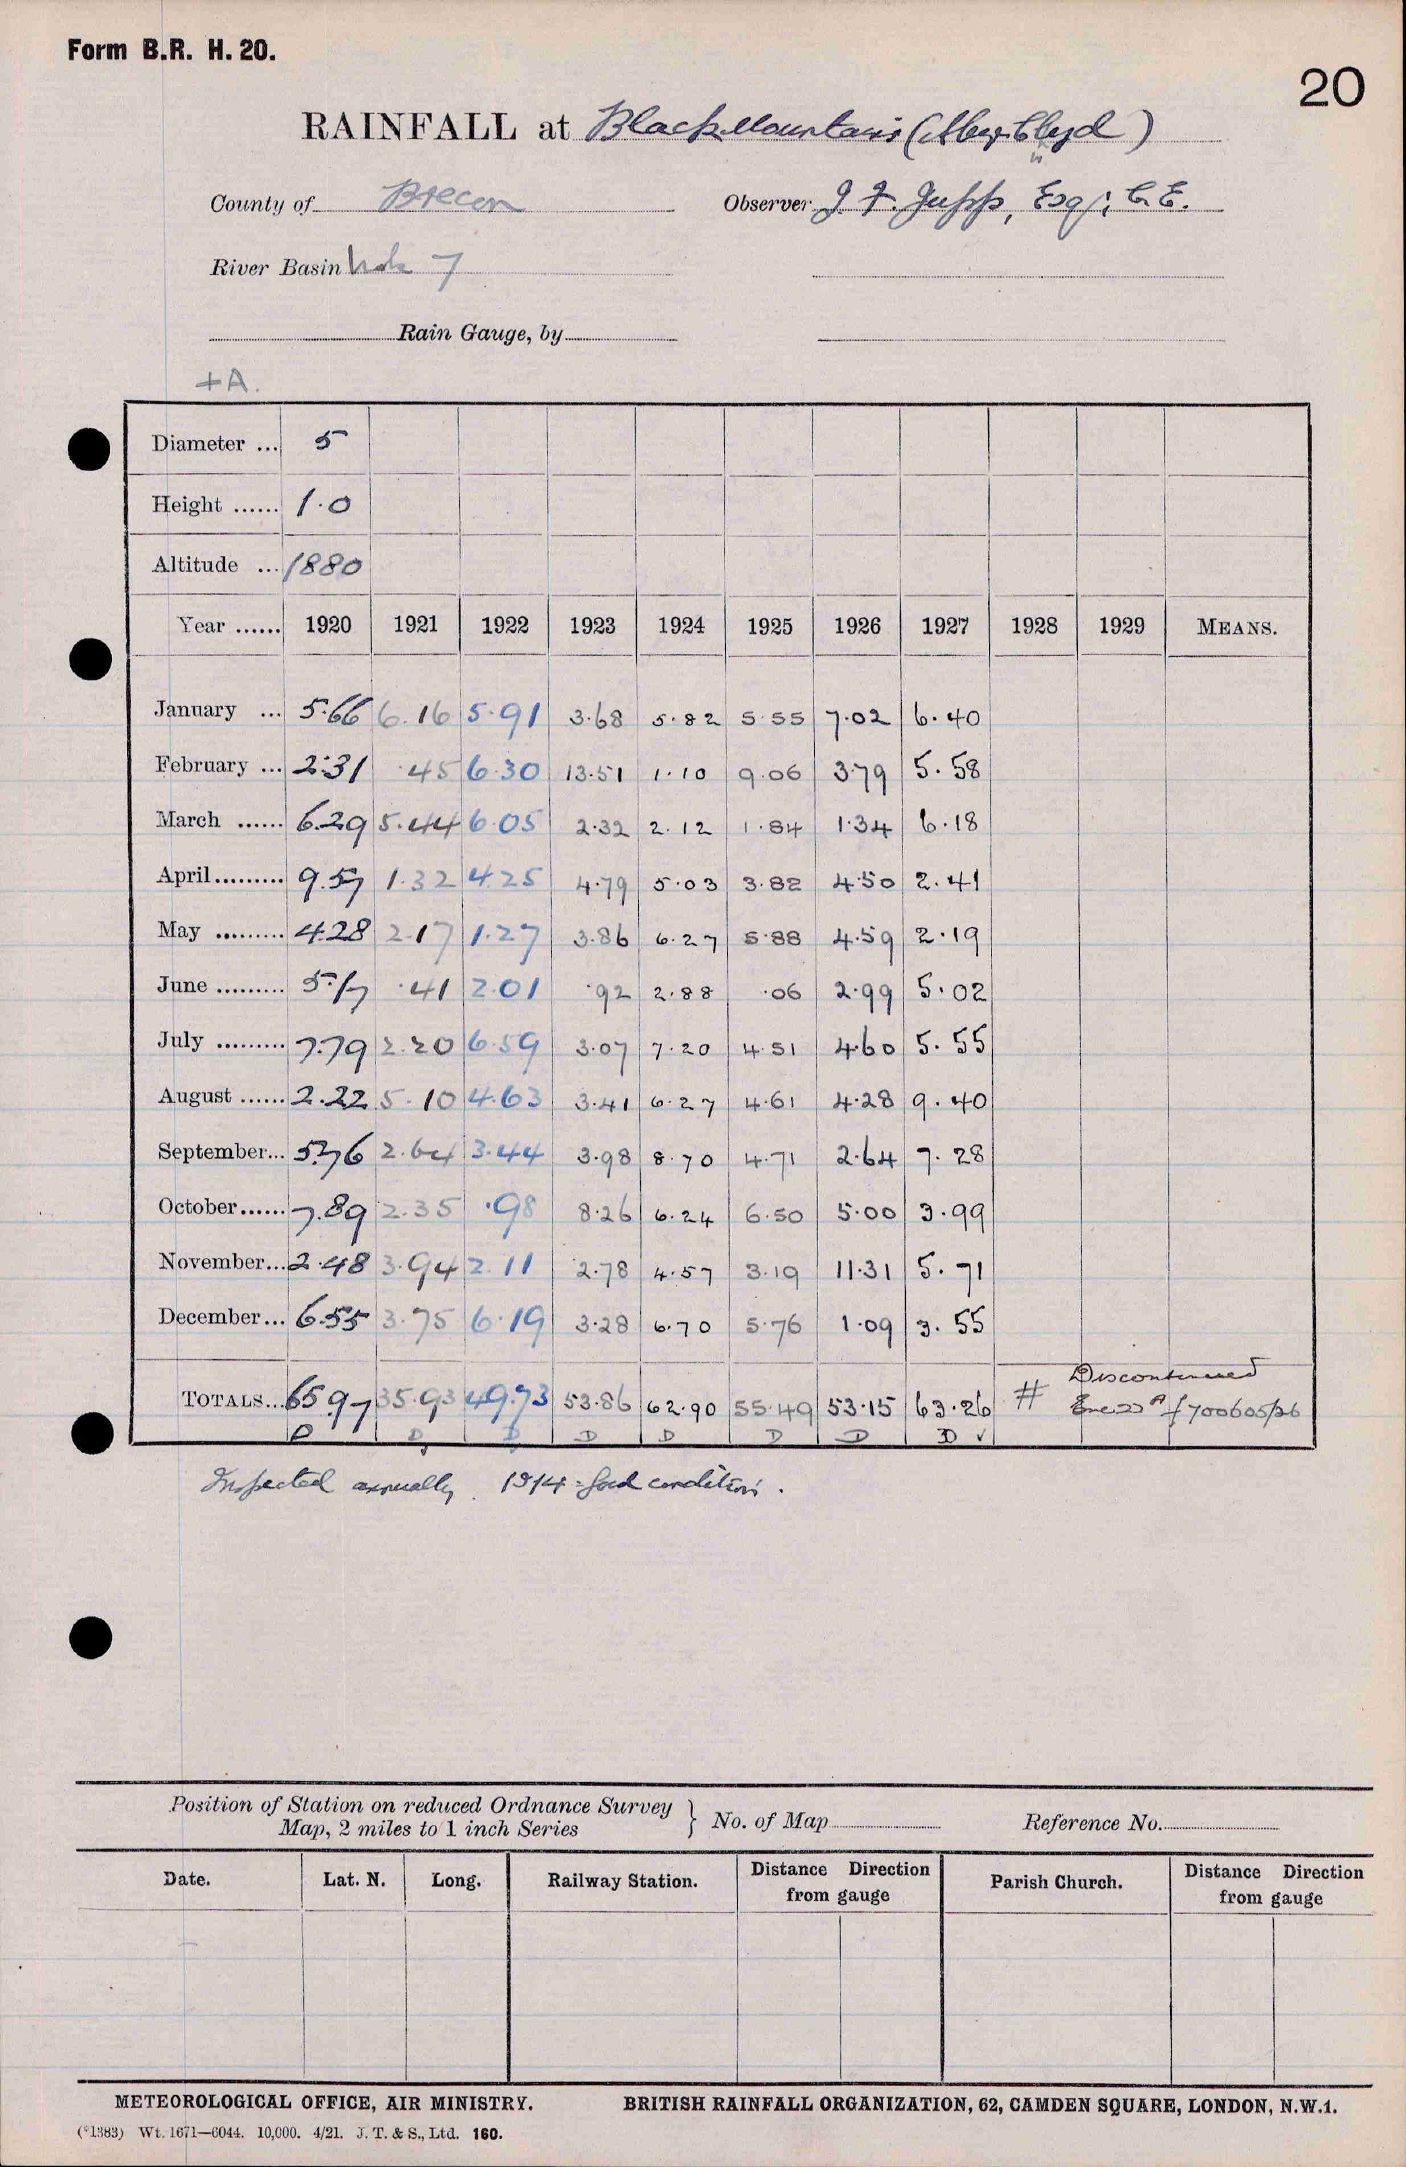 Form B.R. H. 20.
20
RAINFALL at Black Mountain
County of Brecon Observer J. F. Jupp, Esq., C.E.
River Basin 7
Rain Gauge, by
+A.
Diameter ... 5
Height ...... 1.0
Altitude ... 1880
Year ...... 1920 1921 1922 1923 1924 1925 1926 1927 1928 1929 MEANS.
January ... 5.66 6.16 5.91 3.68 5.82 5.55 7.02 6.40
February ... 2.31 .45 6.30 13.51 1.10 9.06 3.79 5.58
March ...... 6.29 5.44 6.05 2.32 2.12 1.84 1.34 6.18
April......... 9.57 1.32 4.25 4.79 5.03 3.82 4.50 2.41
May ......... 4.28 2.17 1.27 3.86 6.27 5.88 4.59 2.19
June ......... 5.17 .41 2.01 .92 2.88 .06 2.99 5.02
July ......... 7.79 2.20 6.59 3.07 7.20 4.51 4.60 5.55
August ...... 2.22 5.10 4.63 3.41 6.27 4.61 4.28 9.40
September... 5.76 2.64 3.44 3.98 8.70 4.71 2.64 7.28
October...... 7.89 2.35 .98 8.26 6.24 6.50 5.00 3.99
November... 2.48 3.94 2.11 2.78 4.57 3.19 11.31 5.71
December... 6.55 3.75 6.19 3.28 6.70 5.76 1.09 3.55
Discontinued
TOTALS... 65.97 35.93 49.73 53.86 62.90 55.49 53.15 63.26 # 700605/26
D D D D D D D D ✓
Inspected annually. 1914 = good condition.
Position of Station on reduced Ordnance Survey
Map, 2 miles to 1 inch Series } No. of Map Reference No.
Date. Lat. N. Long. Railway Station. Distance from gauge Direction Parish Church. Distance from gauge Direction
METEOROLOGICAL OFFICE, AIR MINISTRY. BRITISH RAINFALL ORGANIZATION, 62, CAMDEN SQUARE, LONDON, N.W.1.
(*1383) Wt. 1671—6044. 10,000. 4/21. J. T. & S., Ltd. 160.